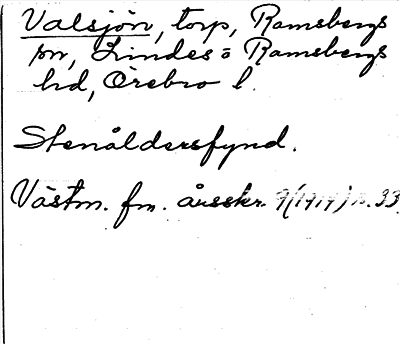 Valsjön, torp, Ramsbergs
sn, Lindes o Ramsbergs
hd, Örebro l.
Stenåldersfynd.
Västm. fm. årsskr. 9(1919) s. 33